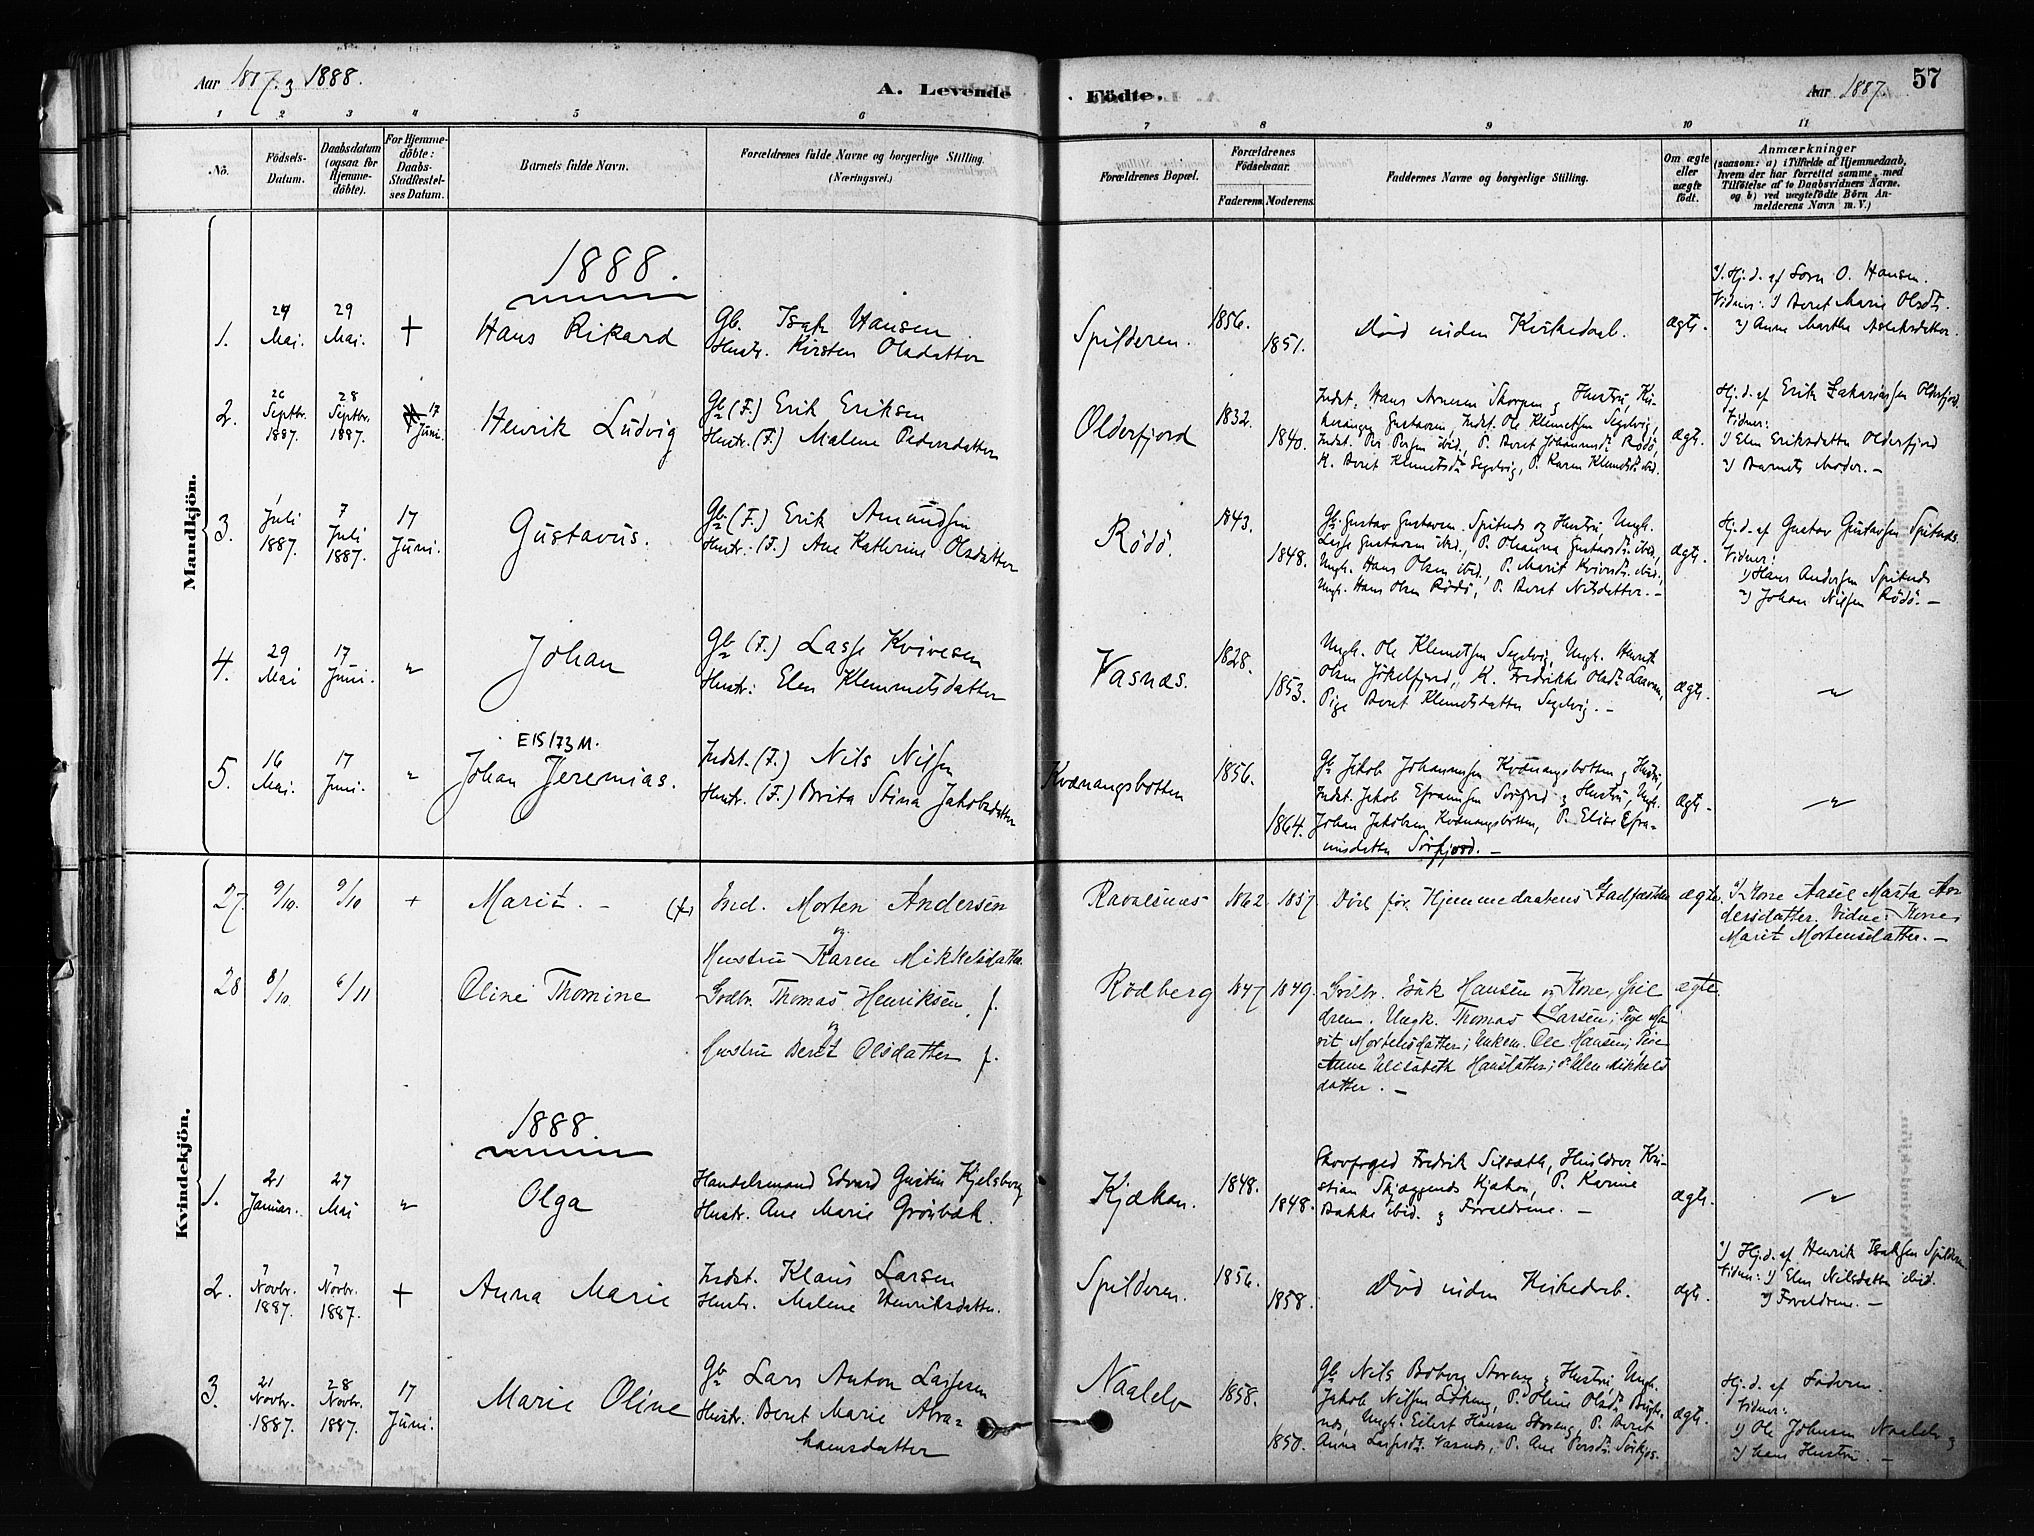 Aar 1887. & 1888.
A. Levende
Födte.
Aar 1887.
57
1 2 3 4 5 6 7 8 9 10 11
No.
Födsels-
Datum.
Daabsdatum
(ogsaa for
Hjemme-
döbte).
For Hjemme-
döbte:
Daabs-
Stadfæstel-
ses Datum.
Barnets fulde Navn.
Forældrenes fulde Navne og borgerlige Stilling.
(Næringsvei.)
Forældrenes Bopæl.
Forældrenes
Födselsaar.
Faderens.
Moderens.
Faddernes Navne og borgerlige Stilling.
Om ægte
eller
uægte
födt.
Anmærkninger
(saasom: a) i Tilfælde af Hjemmedaab,
hvem der har forrettet samme, med
Tilföielse af to Daabsvidners Navne,
og b) ved uægtefödte Börn An-
melderens Navn m. V.)
Mandkjön.
1888.
1.
24
Mai.
29
Mai.
+
Hans Rikard
Gb. Isak Hansen
Hustr. Kirsten Olsdatter
Spilderen.
1856.
1851.
Död uden Kirkedaab.
ægte.
Hj. d. af O. Hansen.
Vidner: 1) Beret Marie Olsdt.
2) Anne Martha
2.
26
Septbr.
1887.
28
Septbr.
1887.
17
Juni.
Henrik Ludvig
Gb (F.) Erik Eriksen
Hustr. (F.) Malene Pedersdatter
Olderfjord
1832.
1840.
Indst. Hans Arnesen
Gustavsen, Indst. Ole Klemetsen Segelvig,
Indst. Per Persen ibid., P. Beret Johannesdt. Rödö,
K. Beret Klemetsdt. Segelvig, P. Karen Klemetsdt. ibid.
ægte.
Hj. d. af Erik Zakariassen Olderfjord.
Vidner:
1) Elen Eriksdatter Olderfjord
2) Barnets Moder. –
3.
1
Juli
1887.
7
Juli
1887.
17
Juni.
Gustavus.
Gb. (F.) Erik Amundsen
Hustr. (F.) Ane Katherine Olsdatter
Rödö.
1843.
1848.
Gb. Gustav Gustavsen Spitnds og Hustru, Ungk.
Lasse Gustavsen ibid., P. Johanna Gustavsdt. ibid.,
Ungk. Hans Olsen ibid., P. Marit Kvivesdt. ibid.,
Ungk. Hans Olsen Rödö, P. Beret Nilsdatter. –
ægte.
Hj. d. af Gustav Gustavsen Spitnds.
Vidner:
1) Hans Andersen Spitnds
2) Johan Nilsen Rödö. –
4.
29
Mai
17
Juni.
"
Johan
Gb (F.) Lasse Kvivesen
Hustr: Elen Klemmetsdatter
Vasnæs.
1828.
1853.
Ungk. Ole Klemetsen Segelvig, Ungk. Henrik
Olsen Jökelfjord, K. Fredrikke Olsdt.
Pige Beret Klemetsdatter Segelvig. –
ægte.
"
5.
16
Mai.
17
Juni.
"
E15/73 M.
Johan Jeremias.
Indst. (F.) Nils Nilsen
Hustr. (F.) Brita Stina Jakobsdatter
Kvænangsbotten
1856.
1864.
Gb Jakob Johannesen Kvænangsbotten & Hustru,
Indst. Jakob Efraimsen Sörfjord & Hustru, Ungk.
Johan Jakobsen Kvænangsbotten, P. Elise Efra-
imsdatter Sörfjord. –
ægte.
"
Kvindekjön.
27.
9/10.
9/10
+
Marit. –
(f)
Ind. Morten Andersen
og
Hustru Karen Mikkelsdatter.
Ravelsnæs
1862
1857
Död før Hjemmedaabens Stadfæstelse
ægte.
1) Kone Aasel Marta An
dersdatter. Vidne: Kone
Marit Mortensdatter. –
28
8/10.
6/11
Oline Thomine
Grdbr. Thomas Henriksen, f.
og
Hustru Beret Olsdatter f.
Rödberg
1847
1849.
Grdbr. Isak Hansen og Kone, Spil
dren. Ungk. Thomas Larsen; Pige Ma
rit Mortensdatter; Unkm. Ole Hansen; Pige
Anne Elisabeth Hansdatter; P. Elen Mikkels
datter. –
ægte.
1888.
1.
21
Januar.
27
Mai
"
Olga
Handelsmand Edvard Gustin Kjelsberg
Hustr. Ane Marie Grönbæk.
Kjækan.
1848.
1848.
Skovfoged Fredrik Kri-
stian Kjækan, P. Karine
Bakke ibid. & Forældrene. –
ægte.
"
2.
7
Novbr.
1887.
7
Novbr.
1887.
+
Anna Marie
Indst. Klaus Larsen
Hustr. Malene Henriksdatter.
Spilderen.
1856.
1858.
Död uden Kirkedaab.
ægte.
Hj. d. af Henrik Isaksen Spilderen
Vidner: 1) Elen Nilsdatter ibid.
2) Forældrene. –
3.
21
Novbr.
1887.
28
Novbr.
1887.
17
Juni.
Marie Oline
Gb Lars Anton Lassesen
Hustr. Beret Marie Abra-
hamsdatter
Naalelv
1858.
1850.
Gb Nils Boberg Storeng & Hustru, Ungk.
Jakob Nilsen P. Oline Olsdt.
Ungk. Eilert Hansen Storeng, P. Beret
Anna Lassesdt. Vasnæs, P. Ane Persdt.
ægte.
Hj. d. af Faderen.
Vidner:
1) Ole Johnsen Naalelv &
2) hans Hustru. –